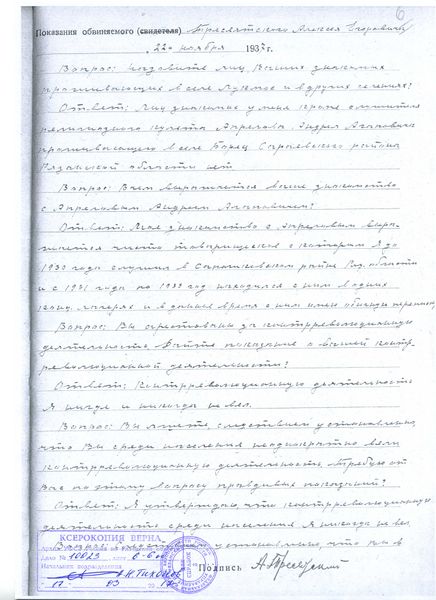 6
Показания обвиняемого (свидетеля) Пресвятского Алексея Егоровича
„22" ноября 1937 г.
Вопрос: Назовите лиц Ваших знакомых
проживающих в селе и в других селениях?
Ответ: Лиц знакомых у меня кроме служителя
религиозного культа Апрелова Андрея Агаповича
проживающего в селе Борец Сараевского района
Рязанской области нет
Вопрос: В чем выражается ваше знакомство
с Апреловым Андреем Агаповичем?
Ответ: Мое знакомство с Апреловым выра-
жается чисто товарищеское с которым я до
1930 года служил в районе Ряз. области
и с 1931 года по 1933 год находился с ним в одних
конц. лагерях и в данное время с ним имею переписку
Вопрос: Вы арестованы за контрреволюционную
деятельность. Дайте показание о вашей контр-
революционной деятельности?
Ответ: Контрреволюционную деятельность
Я нигде и никогда не вел.
Вопрос: Вы следствием установлено,
что Вы среди населения неоднократно вели
контрреволюционную деятельность. Требую от
Вас по этому вопросу правдивых показаний?
Ответ: Я утверждаю, что контрреволюционную
деятельность среди населения Я никогда не вел
Вопрос: следствием установлено, что вы в
Подпись А. Пресвятский
КСЕРОКОПИЯ ВЕРНА
Дело № 10023 лист 6-
Начальник подразделения
А.Н. Тихонов
17 03